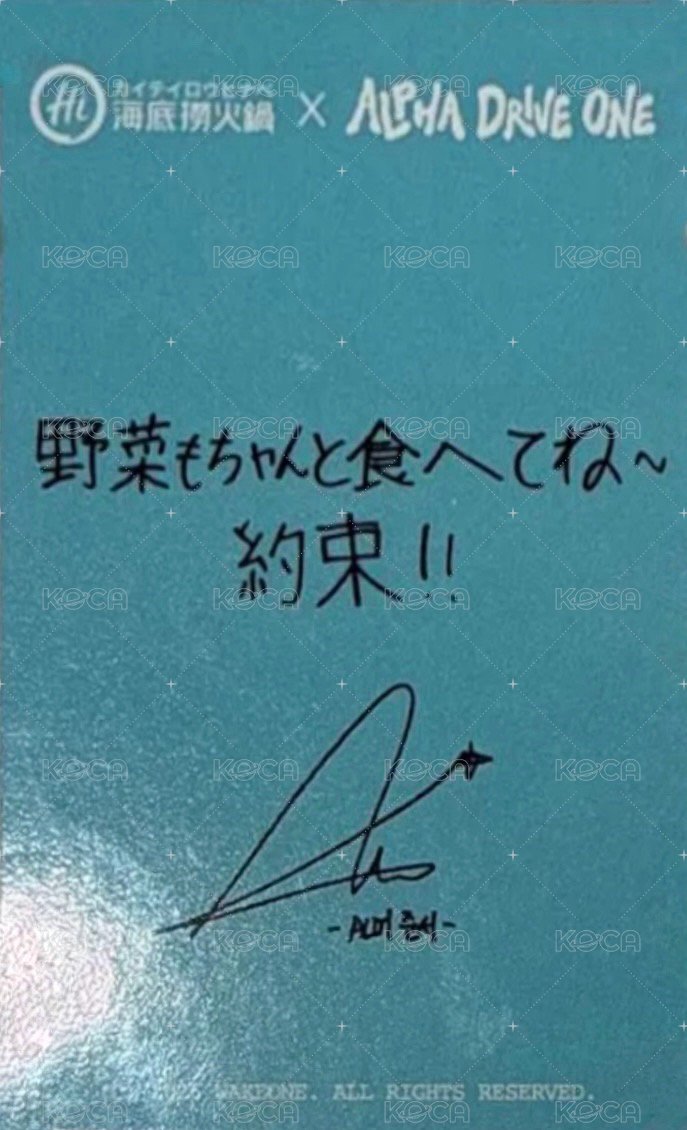 カイテイロウヒナベ
Hi 海底撈火鍋 X ALPHA DRIVE ONE
野菜もちゃんと食べてね~
約束!!
WAKEONE. ALL RIGHTS RESERVED.
KOCA